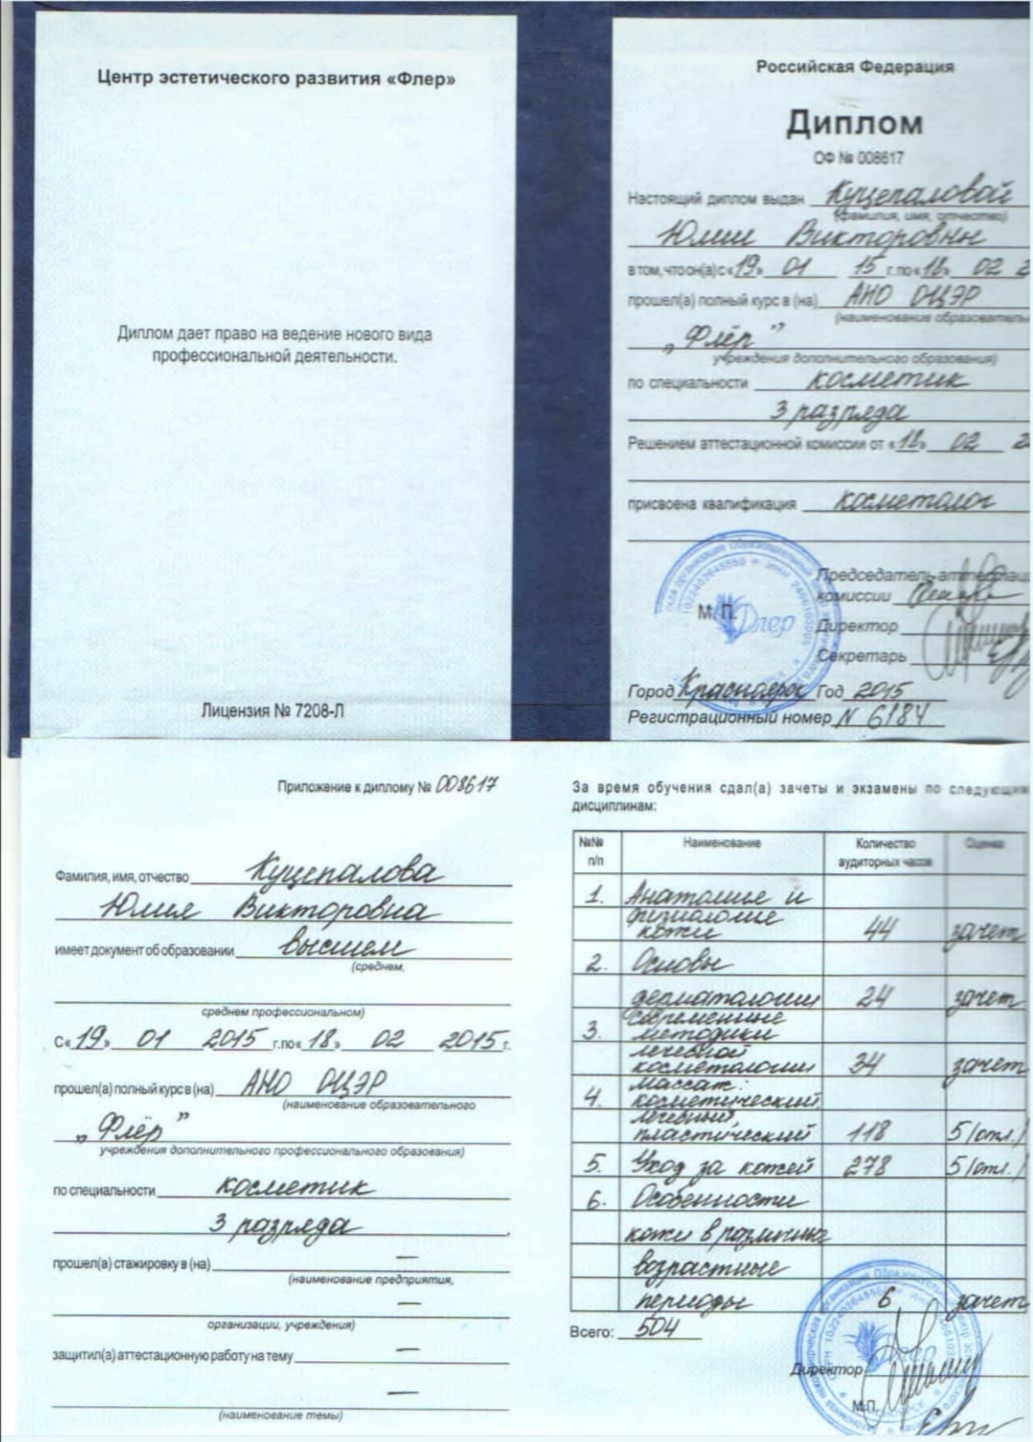 Центр эстетического развития «Флер»
Диплом дает право на ведение нового вида
профессиональной деятельности.
Лицензия № 7208-Л
Российская Федерация
Диплом
ОФ № 008617
Настоящий диплом выдан Куцепаловой
(фамилия, имя, отчество)
Юлие Викторовны
в том, что он(а) с «19» 01 15 г. по «18» 02 2
прошел(а) полный курс в (на) АНО ОЦЭР
(наименование образователь
„Флёр"
учреждения дополнительного образования)
по специальности косметик
3 разряда
Решением аттестационной комиссии от «18» 02 2
присвоена квалификация косметолог
Председатель аттестаци
комиссии
М. П.
Флер
Директор
Секретарь
Город Красноярск Год 2015
Регистрационный номер N 6184
Приложение к диплому № 008617
Фамилия, имя, отчество Куцепалова
Юлия Викторовна
имеет документ об образовании высшем
(среднем,
среднем профессиональном)
С «19» 01 2015 г. по «18» 02 2015 г.
прошел(а) полный курс в (на) АНО ОЦЭР
(наименование образовательного
„Флёр"
учреждения дополнительного профессионального образования)
по специальности косметик
3 разряда
прошел(а) стажировку в (на) —
(наименование предприятия,
—
организации, учреждения)
защитил(а) аттестационную работу на тему —
—
(наименование темы)
За время обучения сдал(а) зачеты и экзамены по следующим
дисциплинам:
№№ Наименование Количество Оценка
п/п аудиторных часов
1. Анатомие и
физиологие
кожи 44 зачет
2. Основы
дерматологии 24 зачет
3. Современные
методики
лечебной
косметологии 34 зачет
массаж:
4. косметический,
лечебный,
пластический 118 5/отл./
5. Уход за кожей 278 5/отл./
6. Особенности
кожи в различна
возрастные
периоды 6 зачет
Всего: 504
Директор
М.П.